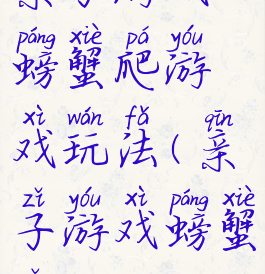 páng xiè pá yóu
螃蟹爬游
xì wán fǎ qīn
戏玩法(亲
zǐ yóu xì páng xiè
子游戏螃蟹